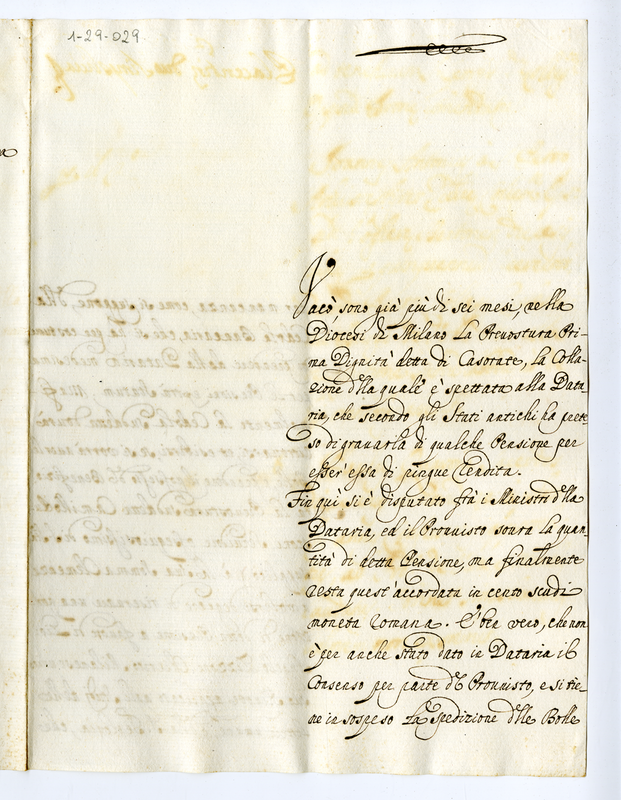 1-29-029
Vacò, sono già più di sei mesi, nella
Diocesi di Milano la Prevostura Pri-
ma Dignità detta di Casorate, la Colla-
zione d'lla quale è spettata alla Data-
ria, che secondo gli Stati antichi ha prete-
so di gravarla di qualche Pensione per
esser'essa di pingue Rendita.
Fin qui si è disputato frà i Ministri d'lla
Dataria, ed il Provvisto sovra la quan-
tità di detta Pensione, ma finalmente
resta quest'accordata in cento scudi
moneta romana. E' ben vero, che non
è per anche stato dato in Dataria il
Consenso per parte d'l Provvisto, e si tie-
ne in sospeso la spedizione d'lle Bolle